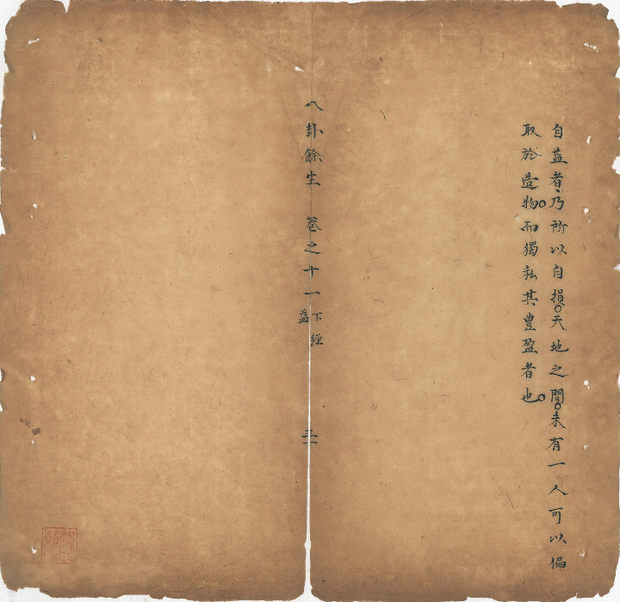 自益者、乃所以自損。天地之間。未有一人可以偏
取於造物。而獨私其豊盈者也。
八卦餘生 卷之十一 下經 益 三